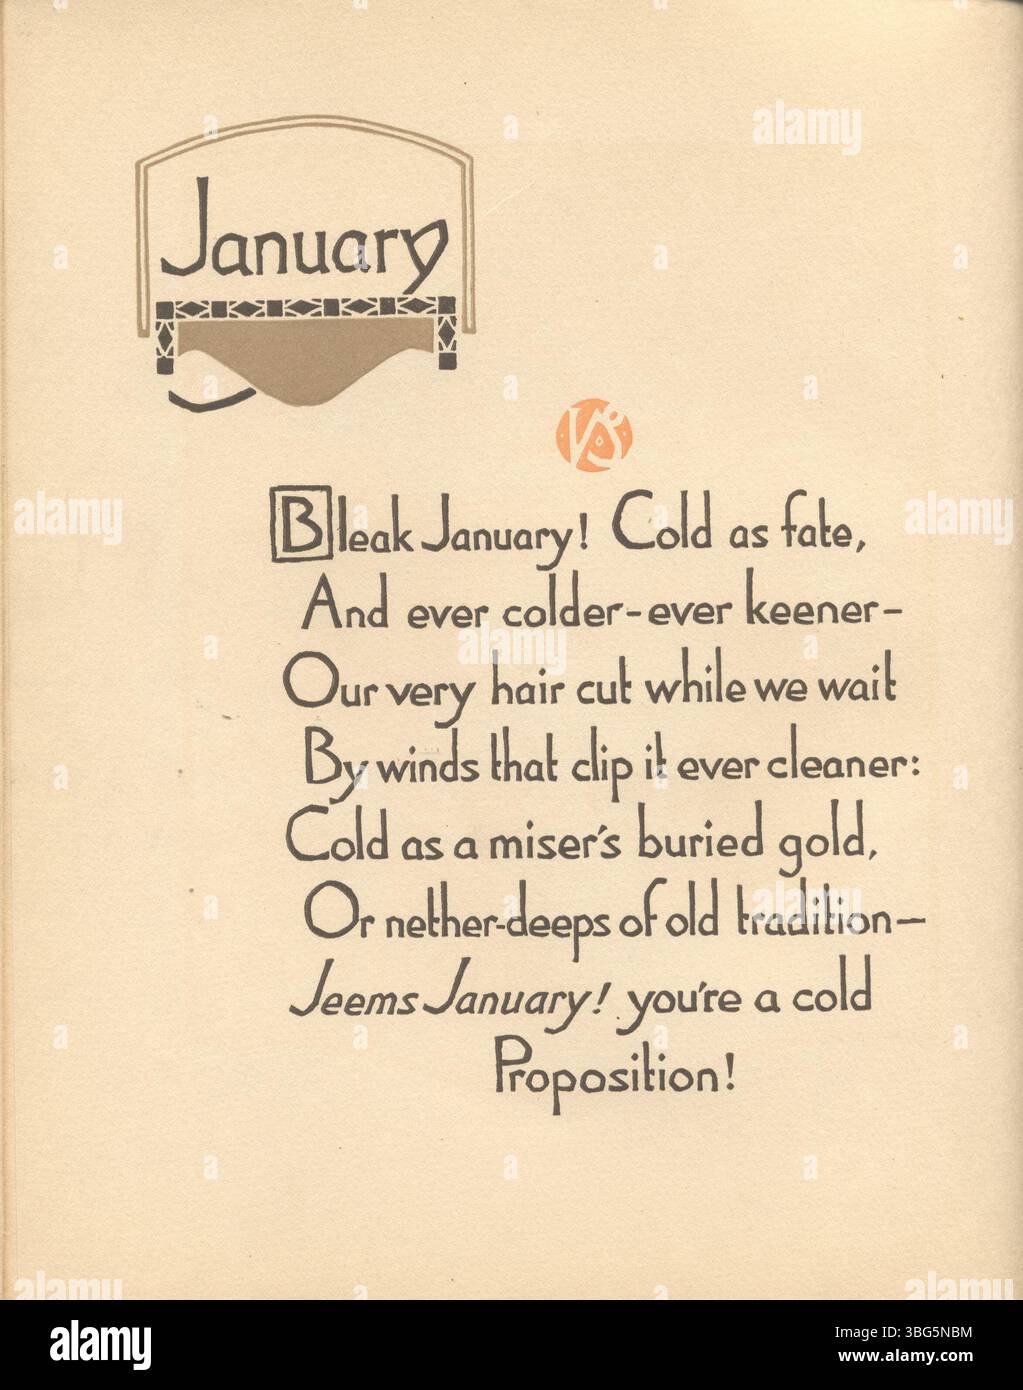 January
Bleak January! Cold as fate,
And ever colder-ever keener-
Our very hair cut while we wait
By winds that clip it ever cleaner:
Cold as a miser's buried gold,
Or nether-deeps of old tradition-
Jeems January! you're a cold
Proposition!
alamy
Image ID: 3BG5NBM
www.alamy.com